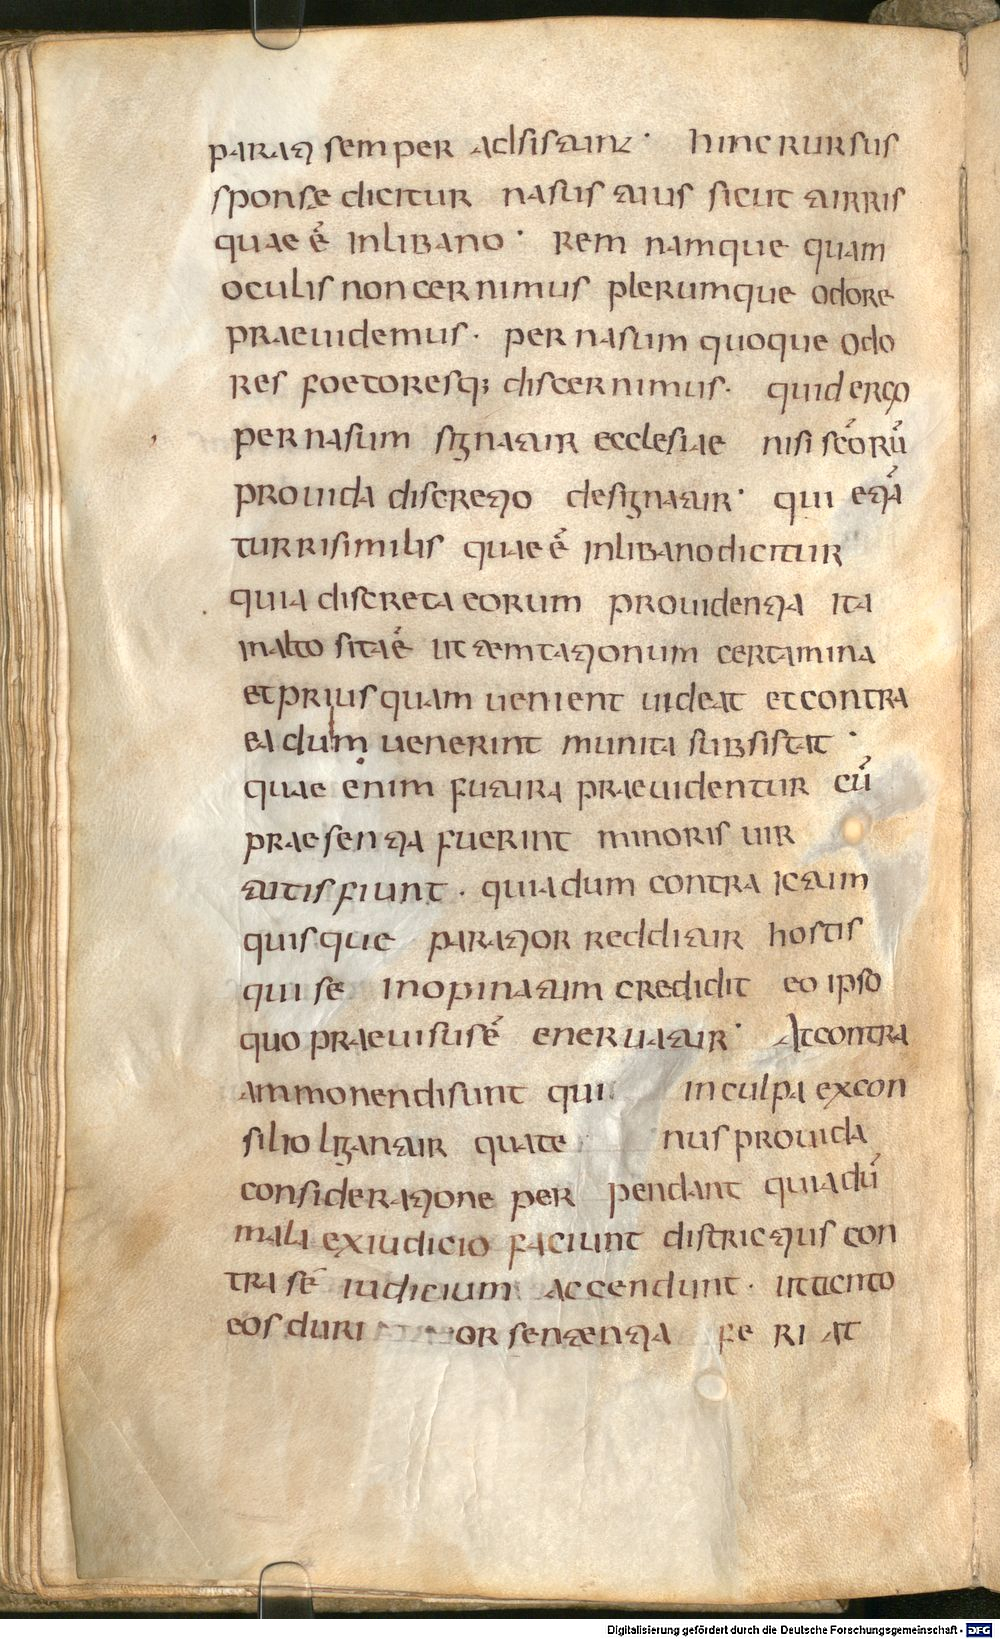 parati semper adsistunt · hinc rursus
sponsae dicitur nasus tuus sicut turris
quae ē inlibano · Rem namque quam
oculis non cernimus plerumque odore
praeuidemus · per nasum quoque odo
res foetoresq; discernimus · quid ergo
per nasum signatur ecclesiae nisi scōrū
prouida discretio designatur · qui etiā
turri similis quae ē inlibano dicitur
quia discreta eorum prouidentia ita
inalto sita ē ut temtationum certamina
et priusquam uenient uideat et contra
ea dum uenerint munita subsistat ·
quae enim futura praeuidentur cū
praesentia fuerint minoris uir
tutis fiunt · quia dum contra ictum
quisque paratior redditur hostis
qui se inopinatum credidit eo ipso
quo praeuisus ē eneruatur · At contra
ammonendi sunt qui in culpa excon
silio ligantur quate nus prouida
consideratione per pendant quia dū
mala exiudicio faciunt districtius con
tra se iudicium accendunt · ut tanto
eos duri or sententia fe ri at
Digitalisierung gefördert durch die Deutsche Forschungsgemeinschaft - DFG